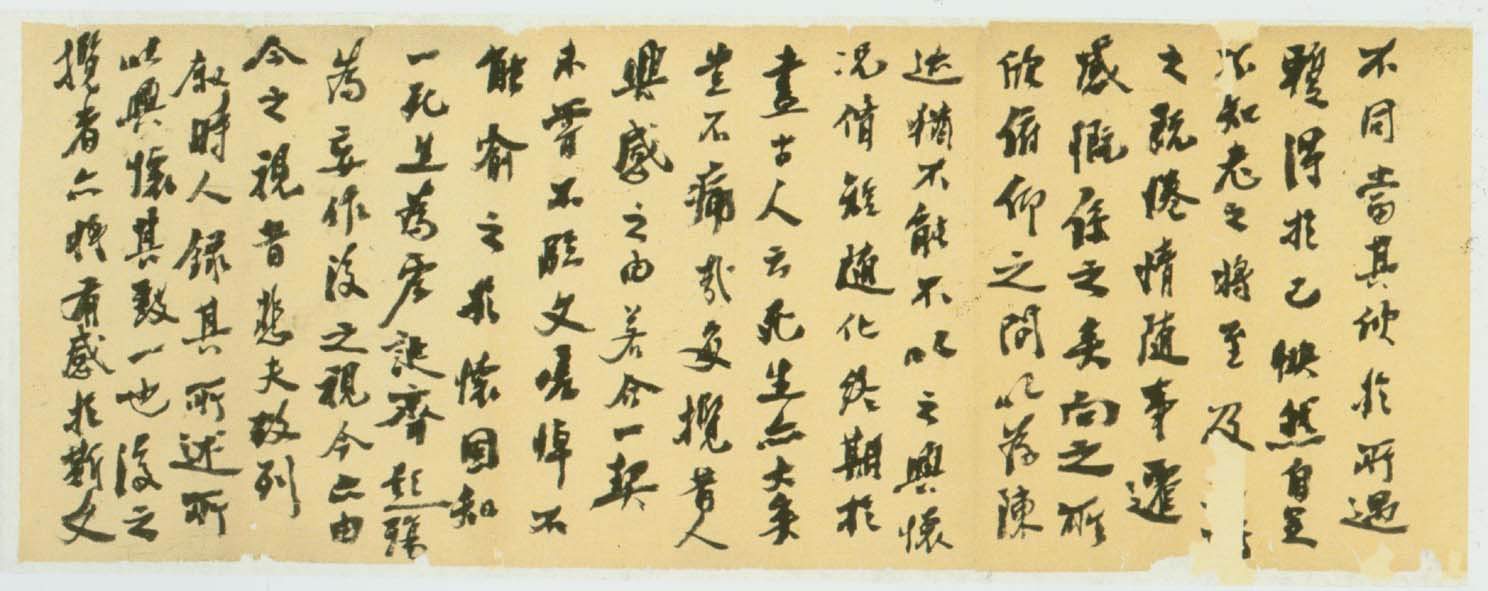 不同當其欣於所遇
暫得於己怏然自足
不知老之將至及
之既惓情隨事遷
感慨係之矣向之所
欣俯仰之間以為陳
迹猶不能不以之興懷
況脩短隨化終期於
盡古人云死生亦大矣
豈不痛哉每攬昔人
興感之由若合一契
未嘗不臨文嗟悼不
能喻之於懷固知
一死生為虛誕齊彭殤
為妄作後之視今亦由
今之視昔悲夫故列
叙時人錄其所述所
以興懷其致一也後之
攬者亦將有感於斯文